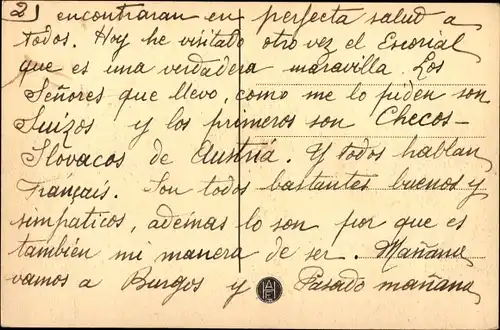 2) encontraran en perfecta salud a
todos. Hoy he visitado otro vez el Escorial
que es una verdadera maravilla. Los
Señores que llevo, como me lo piden son
Suizos y los primeros son Checos-
Slovacos de Austria. Y todos hablan
Français. Son todos bastantes buenos y
simpaticos, ademas lo son por que es
también mi manera de ser. Mañana
vamos a Burgos y Pasado mañana